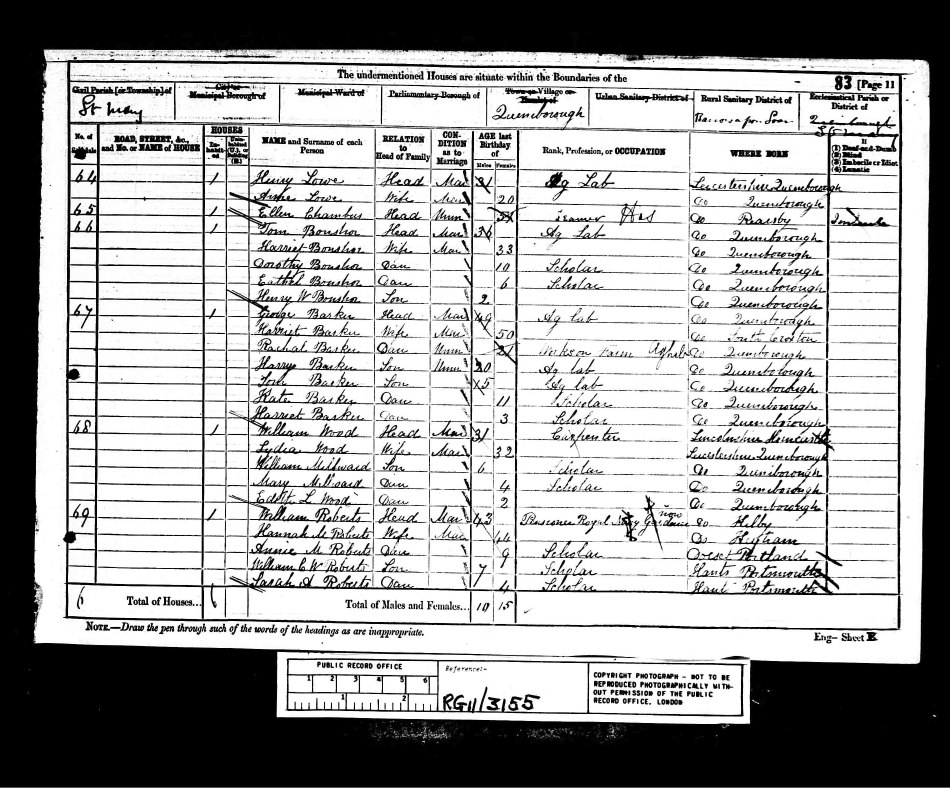 The undermentioned Houses are situate within the Boundaries of the
83 [Page 11
Civil Parish [or Township] of
City or Municipal Borough of
Municipal Ward of
Parliamentary Borough of
Town or Village or Hamlet of
Urban Sanitary District of
Rural Sanitary District of
Ecclesiastical Parish or District of
St Mary
Queniborough
Barrow upon Soar
Queniborough
St Mary
No. of Schedule
ROAD, STREET, &c., and No. or NAME of HOUSE
HOUSES
Inhabited
Uninhabited (U.), or Building (B.)
NAME and Surname of each Person
RELATION to Head of Family
CONDITION as to Marriage
AGE last Birthday of
Males
Females
Rank, Profession, or OCCUPATION
WHERE BORN
If
(1) Deaf-and-Dumb
(2) Blind
(3) Imbecile or Idiot
(4) Lunatic
64 1 Henry Lowe Head Mar 21 Ag Lab Leicestershire Queniborough
Annie Lowe Wife Mar 20 Do Queniborough
65 1 Ellen Chambers Head Unm Hos Do Rearsby
66 1 Tom Bonshor Head Mar 36 Ag Lab Do Queniborough
Harriet Bonshor Wife Mar 33 Do Queniborough
Dorothy Bonshor Dau 10 Scholar Do Queniborough
Eathel Bonshor Dau 6 Scholar Do Queniborough
Henry W Bonshor Son 2 Do Queniborough
67 1 George Barker Head Mar 49 Ag lab Do Queniborough
Harriet Barker Wife Mar 50 Do South Croxton
Rachal Barker Dau Unm 21 Works on Farm Ag lab Do Queniborough
Harry Barker Son Unm 20 Ag lab Do Queniborough
Tom Barker Son 15 Ag lab Do Queniborough
Kate Barker Dau 11 Scholar Do Queniborough
Harriet Barker Dau 3 Scholar Do Queniborough
68 1 William Wood Head Mar 31 Carpenter Lincolnshire Horncastle
Lydia Wood Wife Mar 32 Leicestershire Queniborough
William Millward Son 6 Scholar Do Queniborough
Mary Millward Dau 4 Scholar Do Queniborough
Edith L Wood Dau 2 Do Queniborough
69 1 William Roberts Head Mar 43 Pensioner Royal Navy now Gardener Do Kilby
Hannah M Roberts Wife Mar 44 Do Higham
Annie M Roberts Dau 9 Scholar Dorset Portland
William C W Roberts Son 7 Scholar Hants Portsmouth
Sarah A Roberts Dau 4 Scholar Hants Portsmouth
6 Total of Houses... 6 Total of Males and Females... 10 15
NOTE.—Draw the pen through such of the words of the headings as are inappropriate.
Eng— Sheet E
PUBLIC RECORD OFFICE
1 2 3 4 5 6
1 2
Reference:-
RG11/3155
COPYRIGHT PHOTOGRAPH - NOT TO BE
REPRODUCED PHOTOGRAPHICALLY WITH-
OUT PERMISSION OF THE PUBLIC
RECORD OFFICE, LONDON